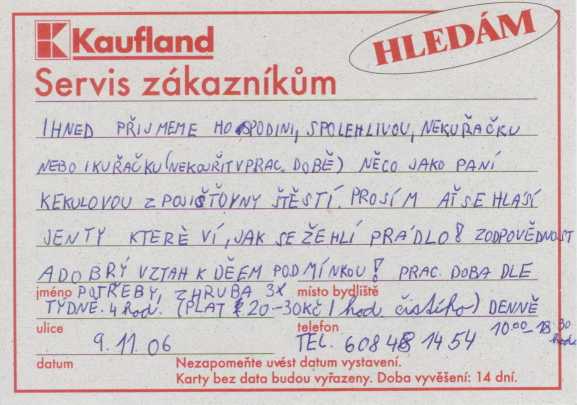 Kaufland
HLEDÁM
Servis zákazníkům
IHNED PŘIJMEME HOSPODINI, SPOLEHLIVOU, NEKUŘAČKU
NEBO I KUŘAČKU (NEKOUŘIT V PRAC. DOBĚ) NĚCO JAKO PANÍ
KEKULOVOU Z POJIŠŤOVNY ŠTĚSTÍ. PROSÍM AŤ SE HLÁSÍ
JEN TY KTERÉ VÍ, JAK SE ŽEHLÍ PRÁDLO! ZODPOVĚDNOST
A DOBRÝ VZTAH K DĚEM PODMÍNKOU! PRAC. DOBA DLE
jméno POTŘEBY, ZHRUBA 3X místo bydliště
TÝDNĚ. 4 hod. (PLAT 20-30KČ / hod. čistého) DENNĚ
ulice telefon 10.00-18.30 hod.
9.11.06 TEL. 608 48 14 54
datum Nezapomeňte uvést datum vystavení.
Karty bez data budou vyřazeny. Doba vyvěšení: 14 dní.